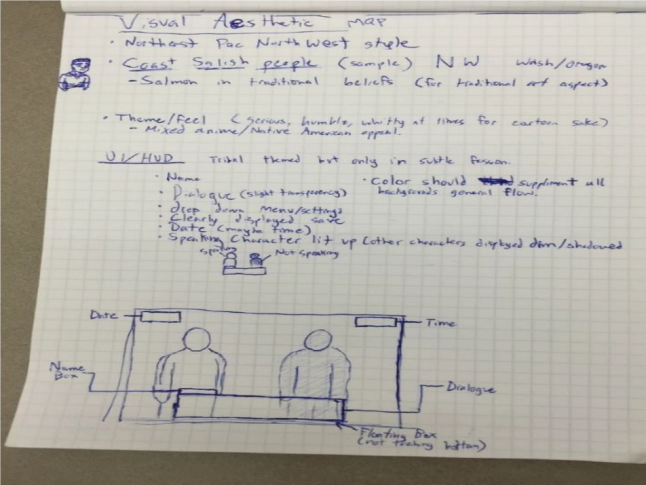 Visual Aesthetic Map
• Northeast Pac North West style
• Coast Salish people (sample) NW Wash/oregon
- Salmon in traditional beliefs (for traditional art aspect)
• Theme/Feel (serious, humble, whitty at times for cartoon sake)
- Mixed anime/Native American appeal.
UI/HUD Tribal themed but only in subtle fasson.
• Name
• Color should suppliment all
backgrounds general flow.
• Dialogue (slight transparency)
• drop down menu/settings
• Clearly displayed save
• Date (maybe time)
• Speaking Character lit up (other characters displayed dim/shadowed
Not speaking
Date
Time
Name
Box
Dialogue
Floating Box
(not touching bottom)